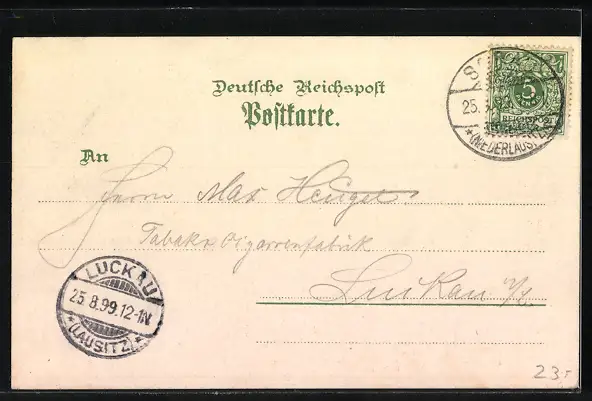 Deutsche Reichspost
Postkarte.
25.
*(NIEDERLAUSITZ)*
5
REICHSPOST
An
Herrn Max
Tabak & Cigarrenfabrik
Luckau
LUCKAU
25.8.99.12-1N.
*(LAUSITZ)*
23,-